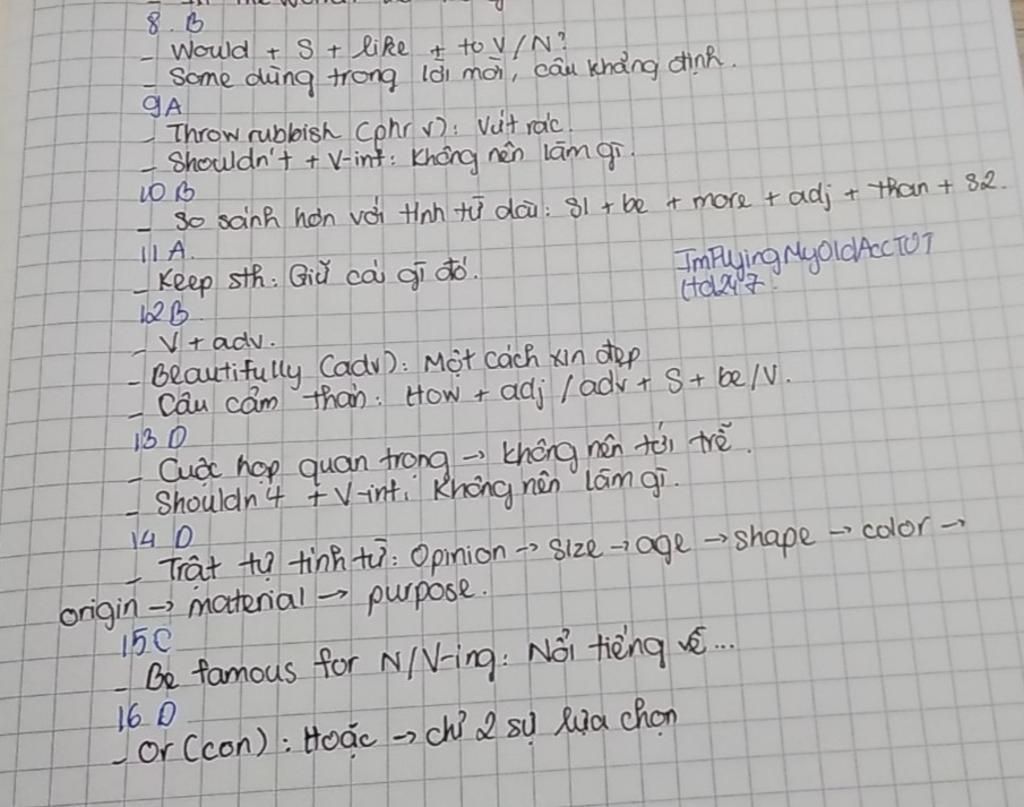 8. B
- Would + S + like + to V/N?
- Some dùng trong lời mời, câu khẳng định.
9A
- Throw rubbish (phr v): Vứt rác.
- Shouldn't + V-inf: Không nên làm gì.
10 B
- So sánh hơn với tính từ dài: S1 + be + more + adj + than + S2.
11 A.
- Keep sth: Giữ cái gì đó.
ImFlyingMyOldAccTOT
Hd247.
12B
- V + adv.
- Beautifully (adv): Một cách xin đẹp
- Câu cảm thán: How + adj / adv + S + be/V.
13 D
- Cuộc họp quan trọng → không nên tới trễ.
- Shouldn't + V-inf: Không nên làm gì.
14 D
- Trật tự tính từ: Opinion → size → age → shape → color →
origin → material → purpose.
15C
- Be famous for N/V-ing: Nổi tiếng về...
16 D
- Or (con): Hoặc → chỉ 2 sự lựa chọn